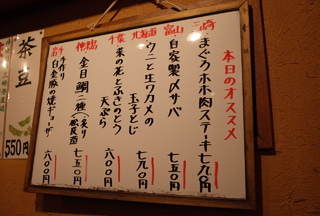 本日のオススメ
三崎
まぐろホホ肉ステーキ 七九〇円
富山
自家製〆サバ 七五〇円
北海道
ウニと生ワカメの
玉子とじ 七九〇円
千葉
菜の花とふきのとう
天ぷら 六〇〇円
伊豆稲取
金目鯛二種
七五〇円
岩手
手作り
白金豚の焼ギョーザ 六〇〇円
茶豆
550円